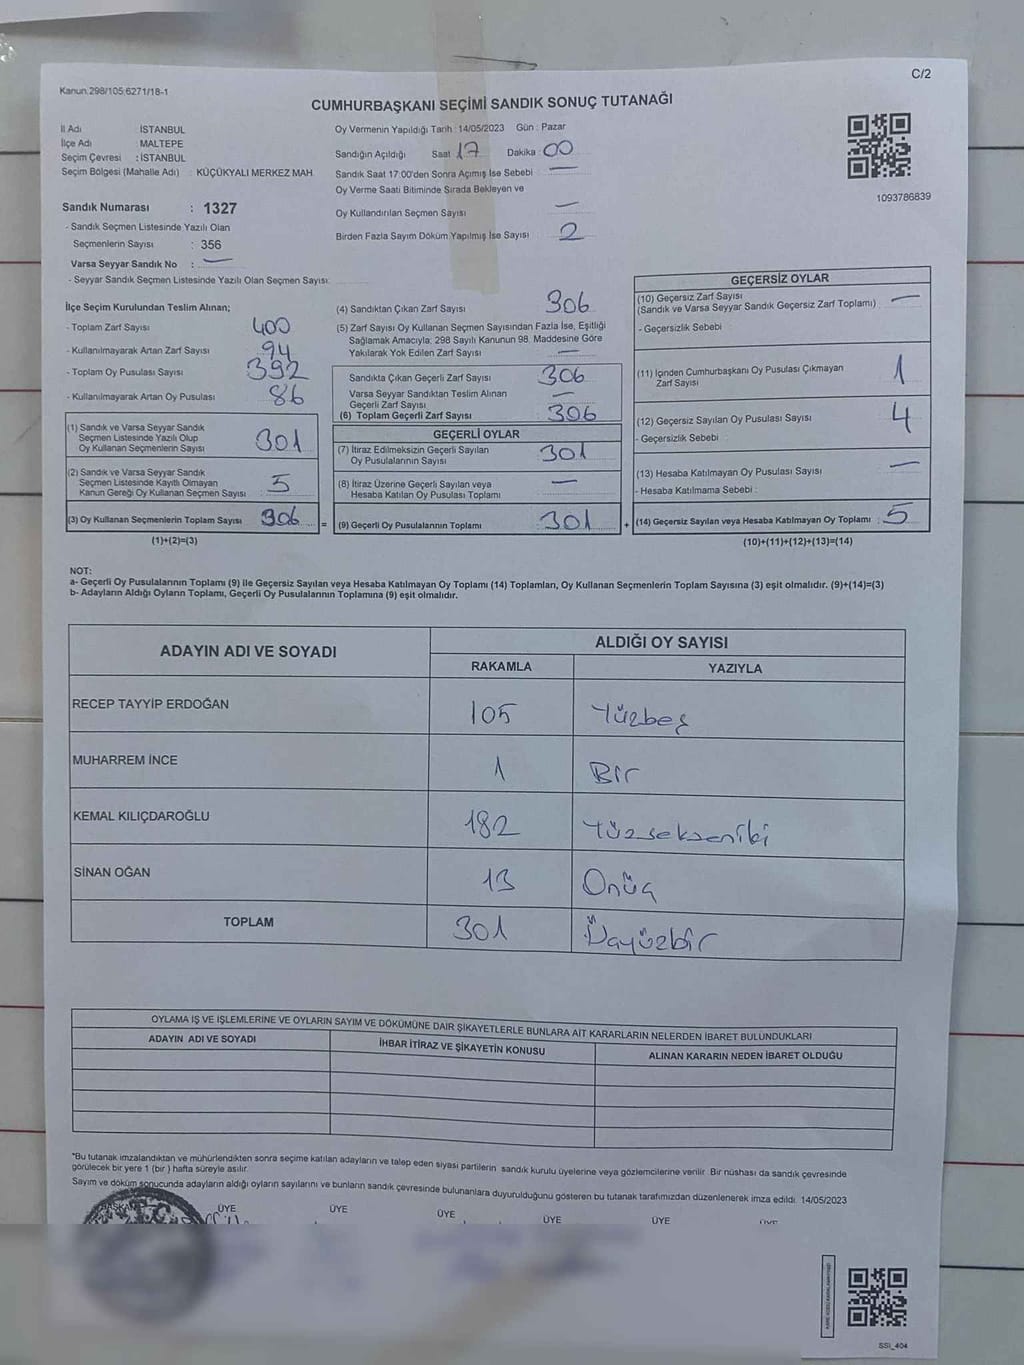 C/2
Kanun.298/105.6271/18-1
CUMHURBAŞKANI SEÇİMİ SANDIK SONUÇ TUTANAĞI
İl Adı : İSTANBUL
İlçe Adı : MALTEPE
Seçim Çevresi : İSTANBUL
Seçim Bölgesi (Mahalle Adı) : KÜÇÜKYALI MERKEZ MAH.
Sandık Numarası : 1327
- Sandık Seçmen Listesinde Yazılı Olan
Seçmenlerin Sayısı : 356
Varsa Seyyar Sandık No : —
- Seyyar Sandık Seçmen Listesinde Yazılı Olan Seçmen Sayısı:
Oy Vermenin Yapıldığı Tarih : 14/05/2023 Gün : Pazar
Sandığın Açıldığı Saat 17 Dakika : 00
Sandık Saat 17:00'den Sonra Açımış İse Sebebi —
Oy Verme Saati Bitiminde Sırada Bekleyen ve
Oy Kullandırılan Seçmen Sayısı —
Birden Fazla Sayım Döküm Yapılmış İse Sayısı 2
1093786839
İlçe Seçim Kurulundan Teslim Alınan;
- Toplam Zarf Sayısı 400
- Kullanılmayarak Artan Zarf Sayısı 94
- Toplam Oy Pusulası Sayısı 392
- Kullanılmayarak Artan Oy Pusulası 86
(1) Sandık ve Varsa Seyyar Sandık
Seçmen Listesinde Yazılı Olup
Oy Kullanan Seçmenlerin Sayısı 301
(2) Sandık ve Varsa Seyyar Sandık
Seçmen Listesinde Kayıtlı Olmayan
Kanun Gereği Oy Kullanan Seçmen Sayısı : 5
(3) Oy Kullanan Seçmenlerin Toplam Sayısı 306 =
(1)+(2)=(3)
(4) Sandıktan Çıkan Zarf Sayısı 306
(5) Zarf Sayısı Oy Kullanan Seçmen Sayısından Fazla İse, Eşitliği
Sağlamak Amacıyla; 298 Sayılı Kanunun 98. Maddesine Göre
Yakılarak Yok Edilen Zarf Sayısı —
Sandıkta Çıkan Geçerli Zarf Sayısı 306
Varsa Seyyar Sandıktan Teslim Alınan
Geçerli Zarf Sayısı —
(6) Toplam Geçerli Zarf Sayısı 306
GEÇERLİ OYLAR
(7) İtiraz Edilmeksizin Geçerli Sayılan
Oy Pusulalarının Sayısı 301
(8) İtiraz Üzerine Geçerli Sayılan veya
Hesaba Katılan Oy Pusulası Toplamı —
(9) Geçerli Oy Pusulalarının Toplamı 301 +
GEÇERSİZ OYLAR
(10) Geçersiz Zarf Sayısı
(Sandık ve Varsa Seyyar Sandık Geçersiz Zarf Toplamı) —
- Geçersizlik Sebebi :
(11) İçinden Cumhurbaşkanı Oy Pusulası Çıkmayan
Zarf Sayısı 1
(12) Geçersiz Sayılan Oy Pusulası Sayısı 4
- Geçersizlik Sebebi :
(13) Hesaba Katılmayan Oy Pusulası Sayısı —
- Hesaba Katılmama Sebebi :
(14) Geçersiz Sayılan veya Hesaba Katılmayan Oy Toplamı : 5
(10)+(11)+(12)+(13)=(14)
NOT:
a- Geçerli Oy Pusulalarının Toplamı (9) ile Geçersiz Sayılan veya Hesaba Katılmayan Oy Toplamı (14) Toplamları, Oy Kullanan Seçmenlerin Toplam Sayısına (3) eşit olmalıdır. (9)+(14)=(3)
b- Adayların Aldığı Oyların Toplamı, Geçerli Oy Pusulalarının Toplamına (9) eşit olmalıdır.
ADAYIN ADI VE SOYADI ALDIĞI OY SAYISI
RAKAMLA YAZIYLA
RECEP TAYYİP ERDOĞAN 105 Yüzbeş
MUHARREM İNCE 1 Bir
KEMAL KILIÇDAROĞLU 182 Yüzsekseniki
SİNAN OĞAN 13 Onüç
TOPLAM 301 Üçyüzbir
OYLAMA İŞ VE İŞLEMLERİNE VE OYLARIN SAYIM VE DÖKÜMÜNE DAİR ŞİKAYETLERLE BUNLARA AİT KARARLARIN NELERDEN İBARET BULUNDUKLARI
ADAYIN ADI VE SOYADI İHBAR İTİRAZ VE ŞİKAYETİN KONUSU ALINAN KARARIN NEDEN İBARET OLDUĞU
*Bu tutanak imzalandıktan ve mühürlendikten sonra seçime katılan adayların ve talep eden siyasi partilerin sandık kurulu üyelerine veya gözlemcilerine verilir. Bir nüshası da sandık çevresinde
görülecek bir yere 1 (bir ) hafta süreyle asılır.
Sayım ve döküm sonucunda adayların aldığı oyların sayılarını ve bunların sandık çevresinde bulunanlara duyurulduğunu gösteren bu tutanak tarafımızdan düzenlenerek imza edildi. 14/05/2023
BAŞKAN ÜYE ÜYE ÜYE ÜYE ÜYE ÜYE
SSI_404